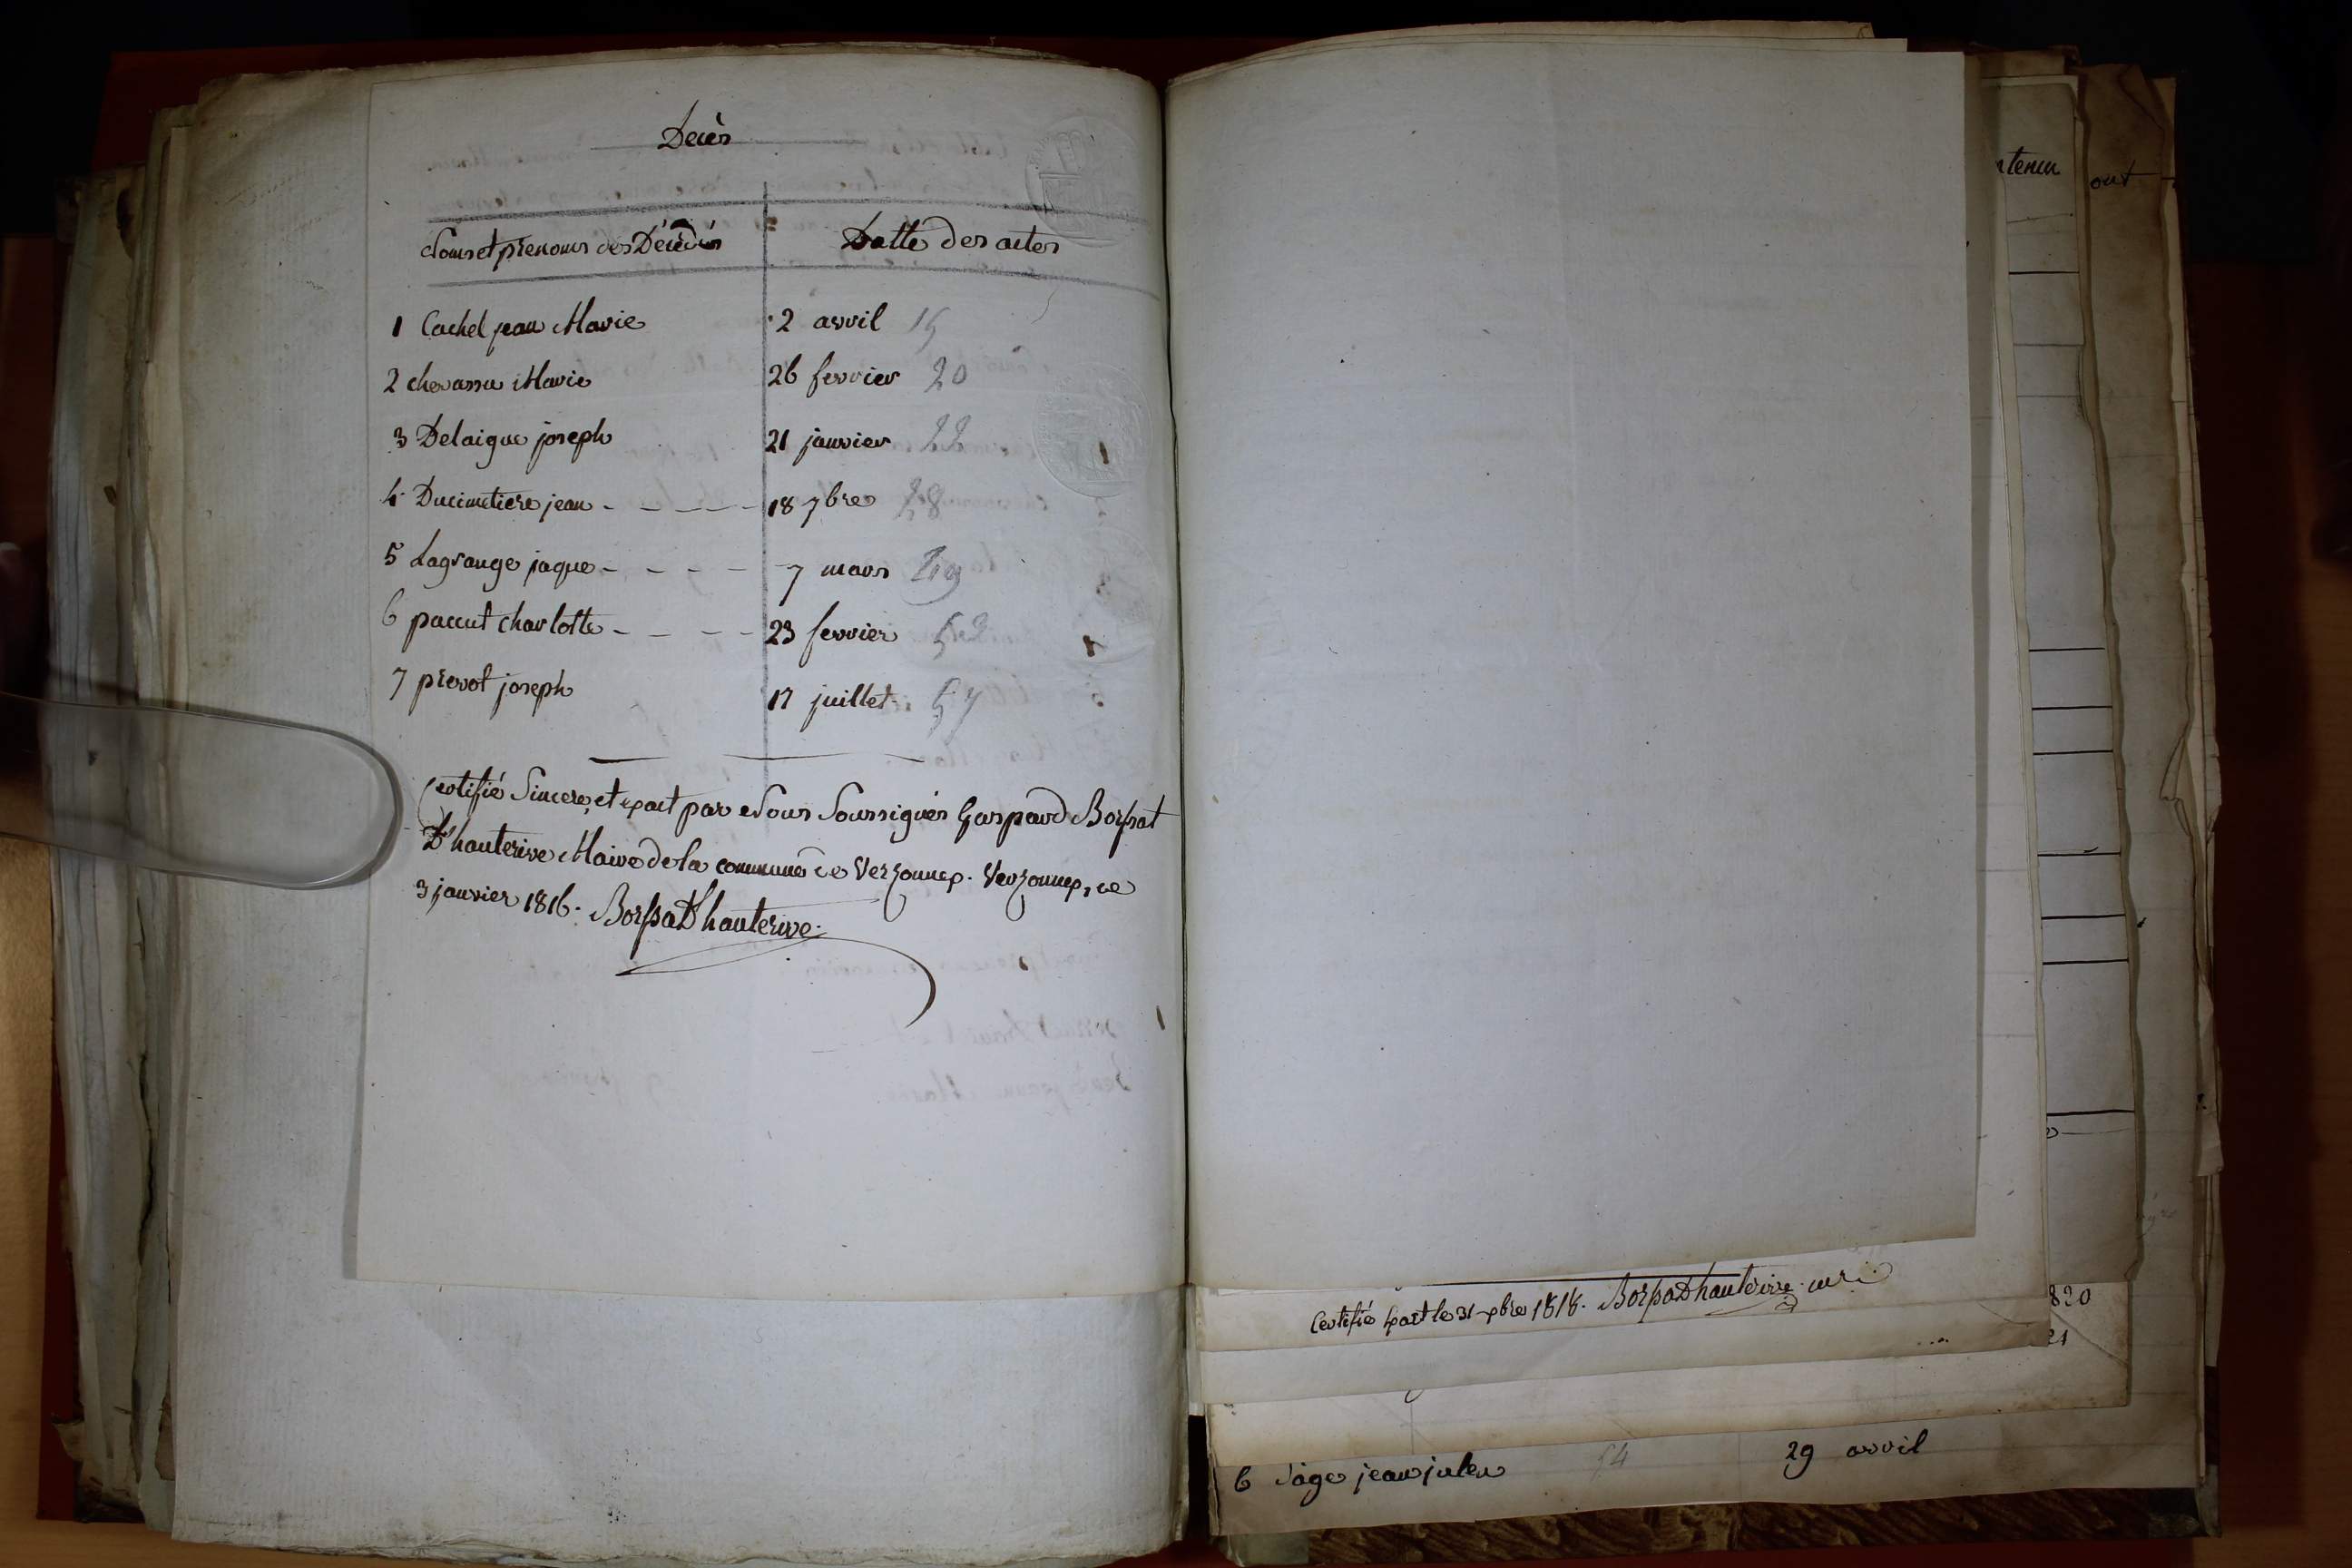 Decès
Noms et prenoms des Décédés Datte des actes
1 Cachel jean Marie 2 avril 15
2 chevassu Marie 26 fevrier 20
3 Delaigue joseph 21 janvier 22
4 Ducimetiere jean - - - - - 18 7bre 28
5 Lagrange jaque - - - - 7 mars 49
6 paccut charlotte - - - - 23 fevrier 52
7 prevot joseph 17 juillet 57
Certifié Sincere, et exact par Nous Soussignés Gaspard Borssat
D'hauterive Maire de la commune de Versonnex. Versonnex, ce
3 janvier 1816. BorssaD'hauterive.
ntenu
ont
Certifié exact le 31 xbre 1818. BorssaDhauterive.
820
21
6 Sage jean julen 54 29 avril